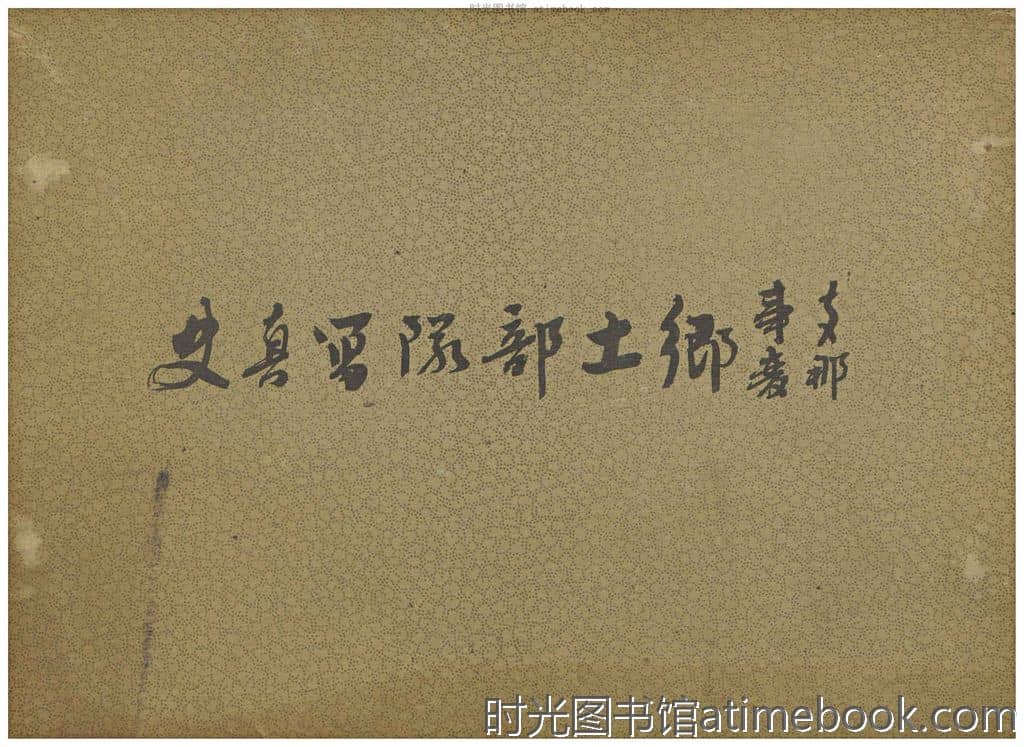 时光图书馆 atimebook.com
支那
事変
郷土部隊写真史
时光图书馆atimebook.com